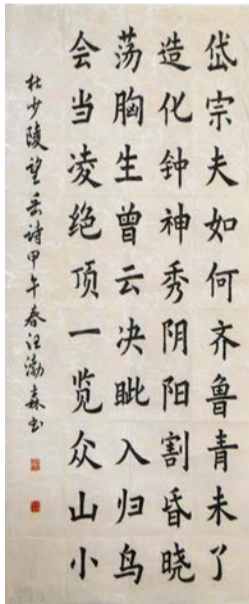 岱宗夫如何齐鲁青未了
造化钟神秀阴阳割昏晓
荡胸生曾云决眦入归鸟
会当凌绝顶一览众山小
杜少陵望岳诗甲午春汪渤森书